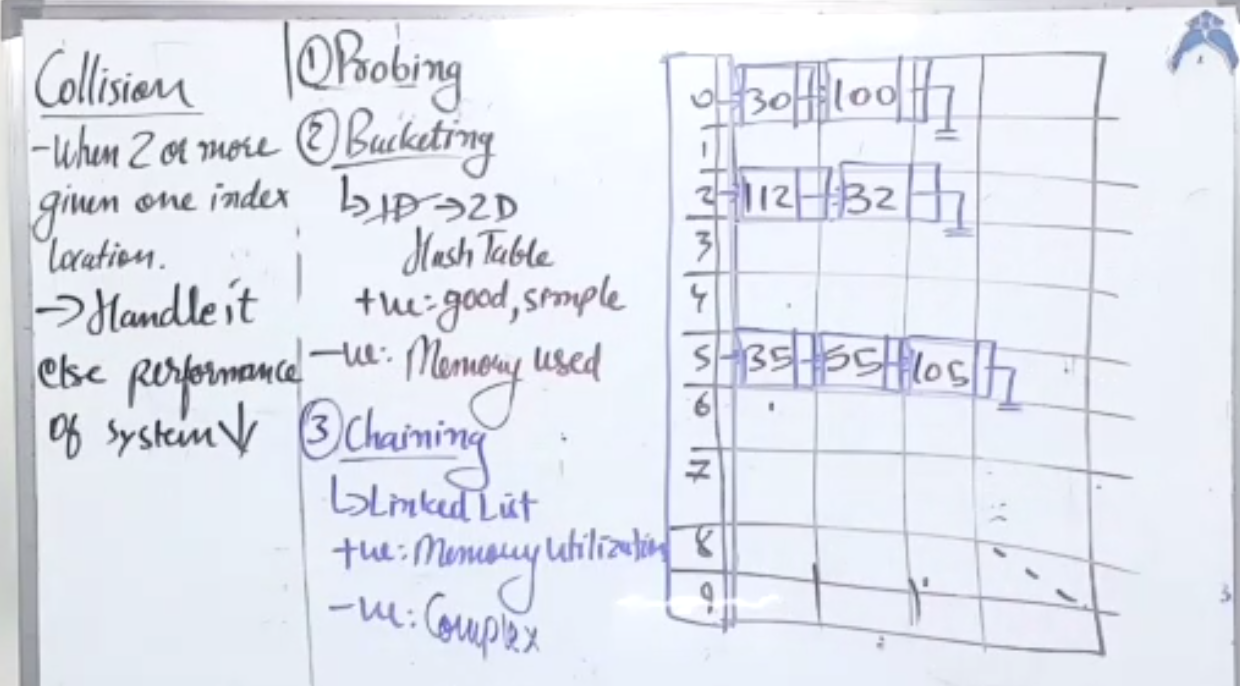 Collision
-When 2 or more
given one index
location.
→Handle it
else performance
of system↓
① Probing
② Bucketing
↳1D→2D
Hash Table
+ve: good, simple
-ve: Memory used
③ Chaining
↳Linked List
+ve: Memory Utilization
-ve: Complex
0 30 100
1
2 112 32
3
4
5 35 55 105
6
7
8
9